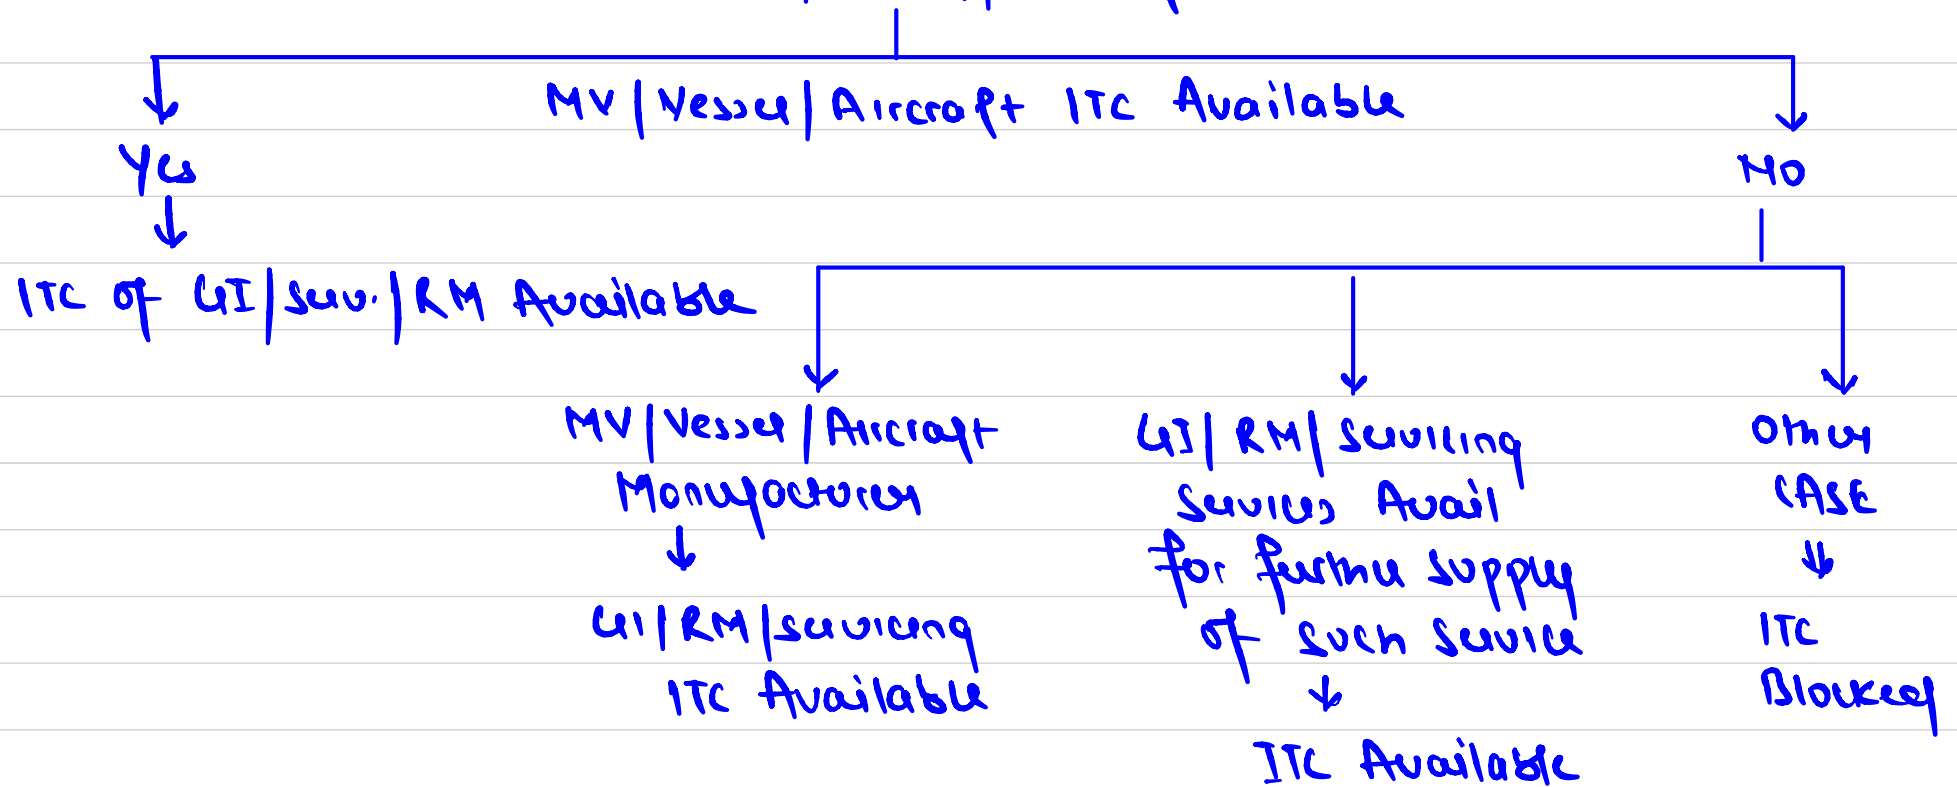 MV/Vessel/Aircraft ITC Available
Yes
NO
ITC of GI/Serv./RM Available
MV/Vessel/Aircraft
Manufacturer
GI/RM/Servicing
ITC Available
GI/RM/Servicing
Services Avail
for further supply
of such service
ITC Available
Other
CASE
ITC
Blocked